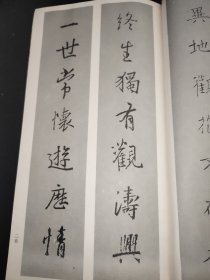 異地觀
終生獨有觀濤興
一世常懷遊歷情